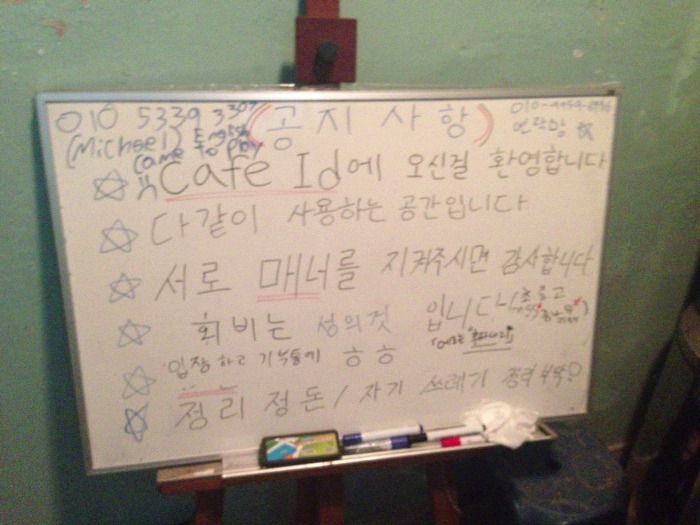 010 5339 3307
(Michael) English
came to play
(공지사항)
연락망
Cafe Id에 오신걸 환영합니다
다같이 사용하는 공간입니다
서로 매너를 지켜주시면 감사합니다
회비는 성의껏 입니다
입장하고 기부통에 ㅎㅎ
정리정돈/자기 쓰레기 정리